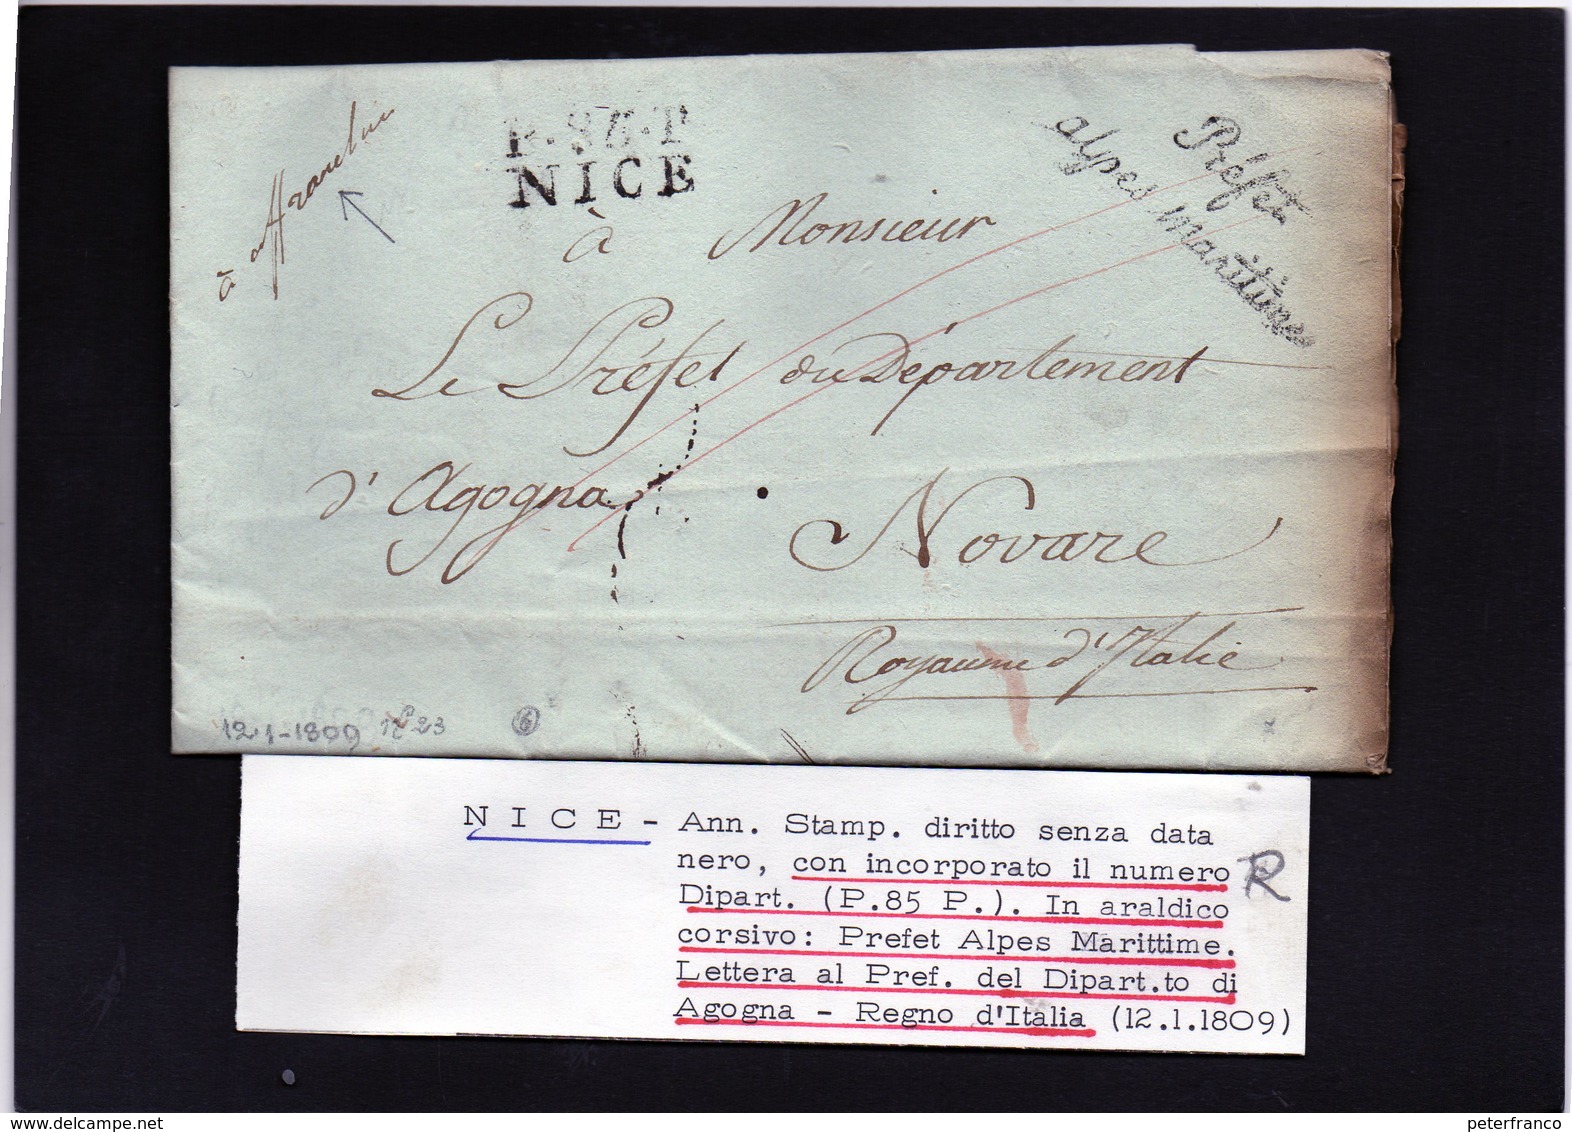 à affranchir
P.85.P
NICE
Préfet
alpes maritimes
à Monsieur
Le Préfet du Département
d'Agogna
Novare
Royaume d'Italie
12-1-1809 N° 23
6
NICE - Ann. Stamp. diritto senza data
nero, con incorporato il numero R
Dipart. (P.85 P.). In araldico
corsivo: Prefet Alpes Marittime.
Lettera al Pref. del Dipart.to di
Agogna - Regno d'Italia (12.1.1809)
peterfranco